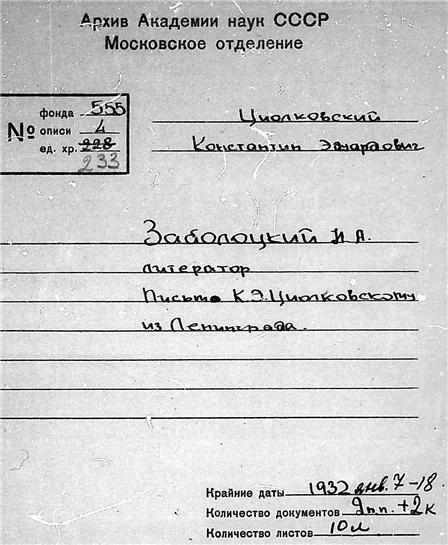 Архив Академии наук СССР
Московское отделение
фонда 555
№ описи 4
ед. хр. 228
233
Циолковский
Константин Эдуардович
Заболоцкий Н А.
литератор
Письма К.Э.Циолковскому
из Ленинграда.
Крайние даты 1932 янв. 7-18.
Количество документов 2п.п. + 2к
Количество листов 10л